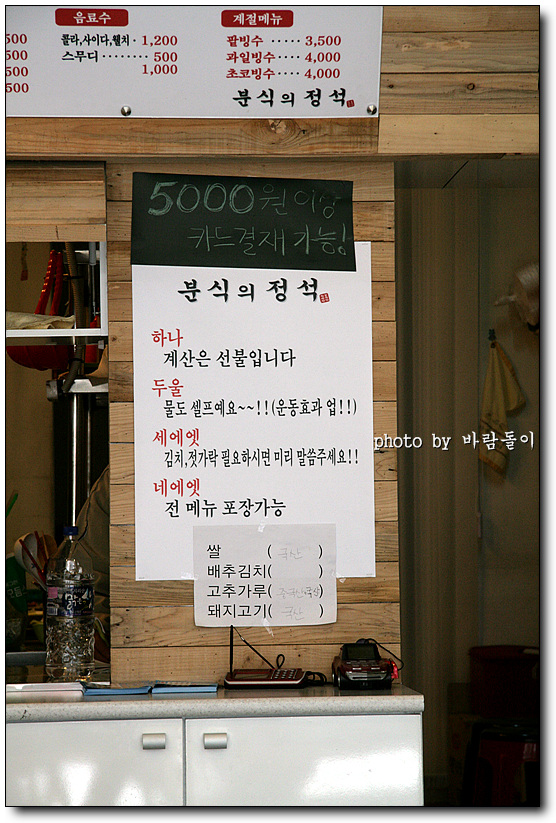 음료수
콜라,사이다,웰치 · 1,200
스무디 ········ 500
1,000
500
500
500
500
계절메뉴
팥빙수 ····· 3,500
과일빙수 ···· 4,000
초코빙수 ···· 4,000
분식의 정석
5000원 이상
카드결재 가능!
분식의 정석
하나
계산은 선불입니다
두울
물도 셀프예요~~!!(운동효과 업!!)
세에엣
김치,젓가락 필요하시면 미리 말씀주세요!!
네에엣
전 메뉴 포장가능
photo by 바람돌이
쌀 ( 국산 )
배추김치( )
고추가루( )
돼지고기( 국산 )
맑은